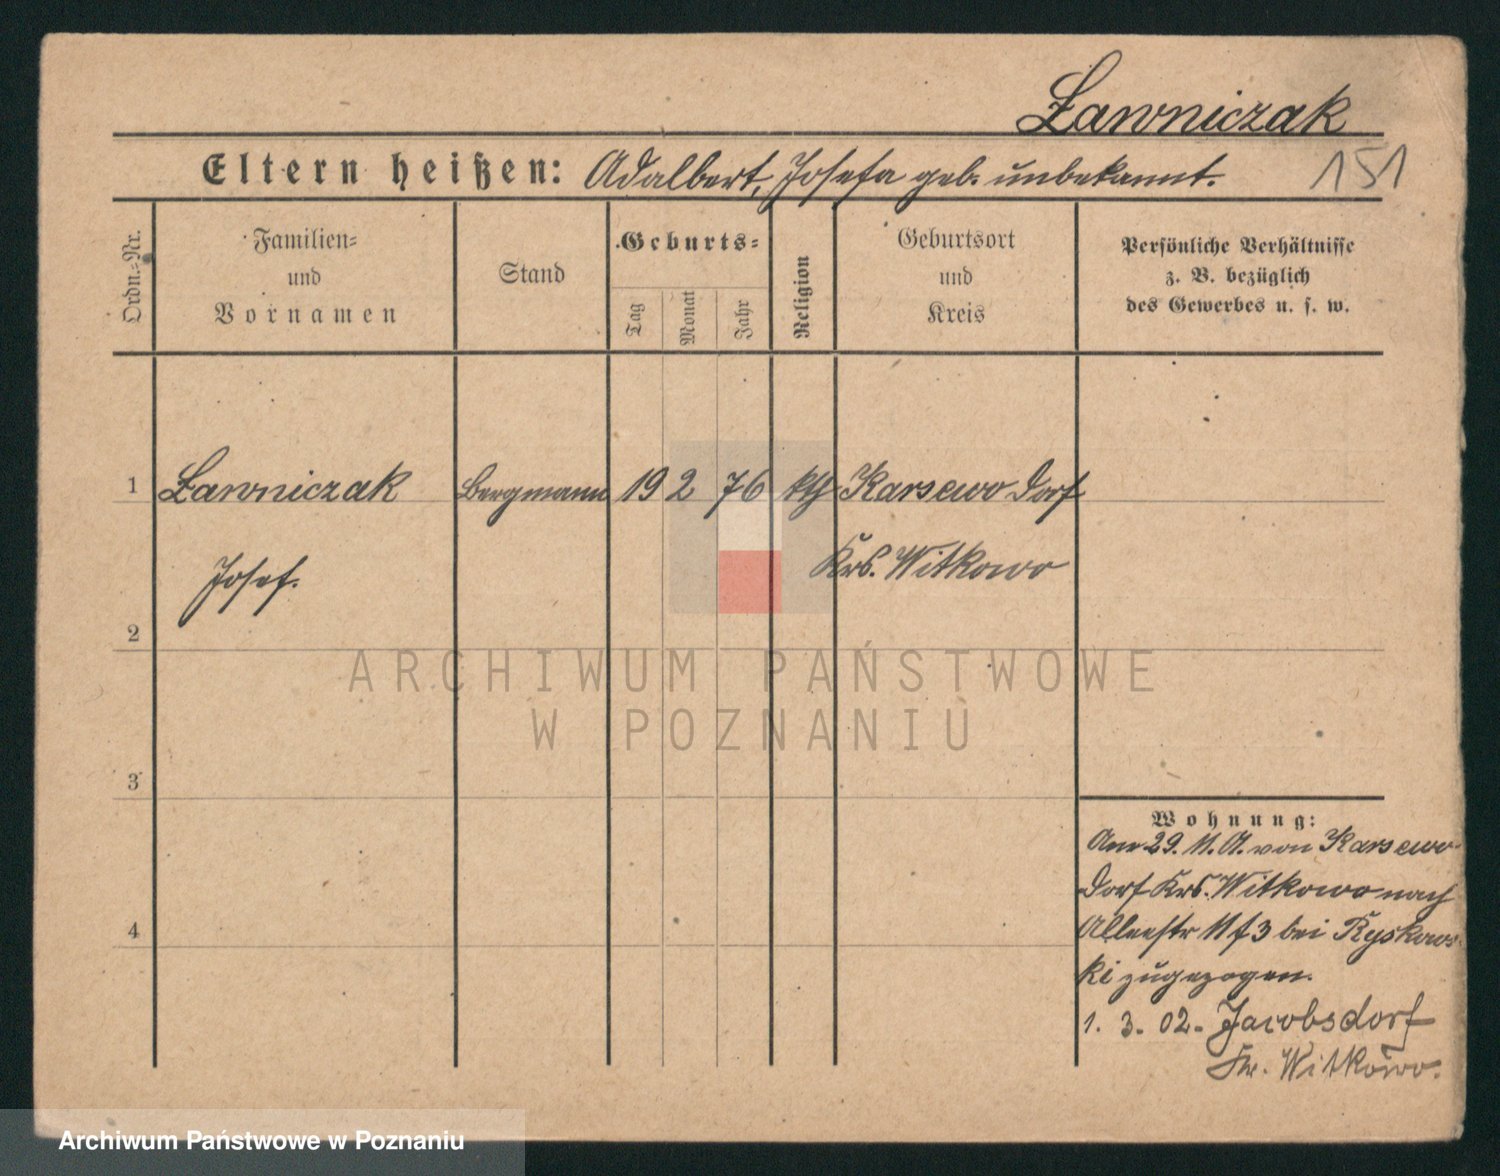 Ławniczak
Eltern heißen: Adalbert, Josefa geb. unbekannt. 151
Ordn.-Nr.
Familien-
und
Vornamen
Stand
Geburts-
Tag
Monat
Jahr
Religion
Geburtsort
und
Kreis
Persönliche Verhältnisse
z. B. bezüglich
des Gewerbes u. s. w.
1 Ławniczak Bergmann 19 2 76 kth Karsewo Dorf
Josef. Krs. Witkowo
2
3
4
ARCHIWUM PAŃSTWOWE
W POZNANIU
Wohnung:
29. 11. von Karsewo-
Dorf Krs. Witkowo nach
Alleestr bei Ryskows-
ki zugezogen.
1. 3. 02. Jacobsdorf
Kr. Witkowo.
Archiwum Państwowe w Poznaniu